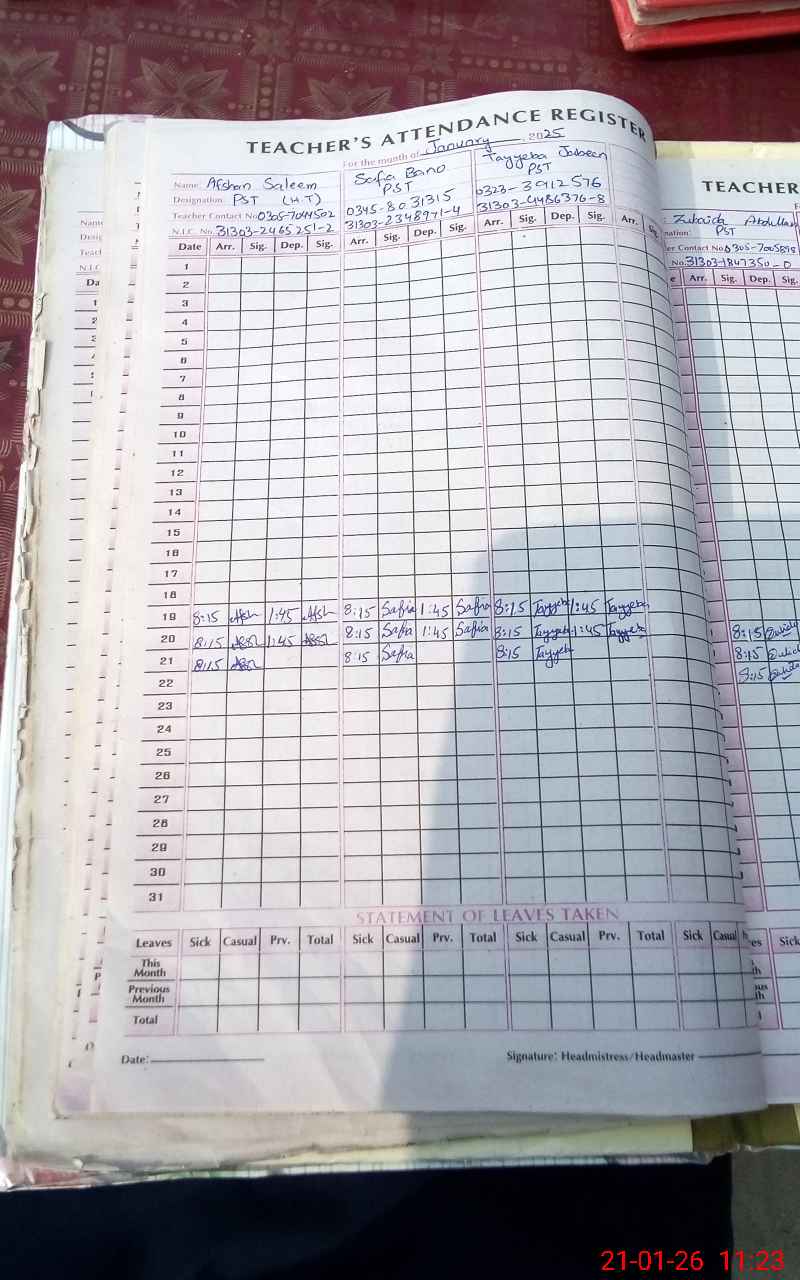 TEACHER'S ATTENDANCE REGISTER
For the month of January, 2025
Name: Afshan Saleem Safia Bano Tayyeba Jabeen
Designation: PST (H.T) PST PST
Teacher Contact No. 0305-7044502 0345-8031315 0323-3912576
N.I.C. No. 31303-2465251-2 31303-2348971-4 31303-4486376-8
Date Arr. Sig. Dep. Sig. Arr. Sig. Dep. Sig. Arr. Sig. Dep. Sig. Arr. Sig.
1
2
3
4
5
6
7
8
9
10
11
12
13
14
15
16
17
18
19 8:15 Afsh 1:45 Afsh 8:15 Safia 1:45 Safia 8:15 Tayyeba 1:45 Tayyeba
20 8:15 1:45 8:15 Safia 1:45 Safia 8:15 Tayyeba 1:45 Tayyeba
21 8:15 8:15 Safia 8:15 Tayyeba
22
23
24
25
26
27
28
29
30
31
STATEMENT OF LEAVES TAKEN
Leaves Sick Casual Prv. Total Sick Casual Prv. Total Sick Casual Prv. Total Sick Casual
This Month
Previous Month
Total
Date: Signature: Headmistress/Headmaster
TEACHER
Zubaida Abdullah
nation: PST
er Contact No. 0305-7005898
No. 31303-1847350-0
e Arr. Sig. Dep. Sig.
8:15
8:15
8:15
es Sick
21-01-26 11:23